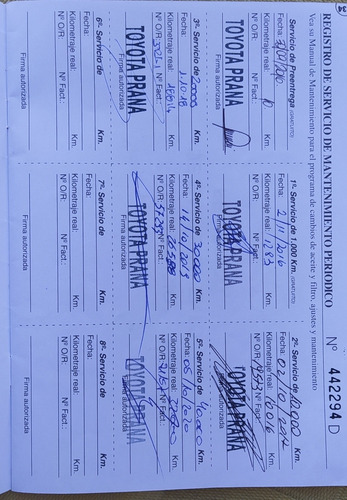 REGISTRO DE SERVICIO DE MANTENIMIENTO PERIODICO
Nº 442294 D
Vea su Manual de Mantenimiento para el programa de cambios de aceite y filtro, ajustes y mantenimiento
Servicio de Preentrega (GRATUITO)
Fecha:
Kilometraje real: 10 Km.
Nº O/R: Nº Fact.:
TOYOTA PRANA
1er. Servicio de 1.000 Km. (GRATUITO)
Fecha: 2/11/2016
Kilometraje real: 1283 Km.
Nº O/R: Nº Fact.:
TOYOTA PRANA
Firma autorizada
2º- Servicio de 10.000 Km.
Fecha:
Kilometraje real: 10016 Km.
Nº O/R: Nº Fact.:
TOYOTA PRANA
Firma autorizada
3º- Servicio de 20000 Km.
Fecha: 1.10.18
Kilometraje real: Km.
Nº O/R: Nº Fact.:
TOYOTA PRANA
Firma autorizada
4º- Servicio de 30.000 Km.
Fecha: 14/10/2019
Kilometraje real: Km.
Nº O/R: Nº Fact.:
TOYOTA PRANA
Firma autorizada
5º- Servicio de 40.000 Km.
Fecha: 05/10/2020
Kilometraje real: Km.
Nº O/R: Nº Fact.:
TOYOTA PRANA
Firma autorizada
6º- Servicio de Km.
Fecha:
Kilometraje real: Km.
Nº O/R: Nº Fact.:
Firma autorizada
7º- Servicio de Km.
Fecha:
Kilometraje real: Km.
Nº O/R: Nº Fact.:
Firma autorizada
8º- Servicio de Km.
Fecha:
Kilometraje real: Km.
Nº O/R: Nº Fact.:
Firma autorizada